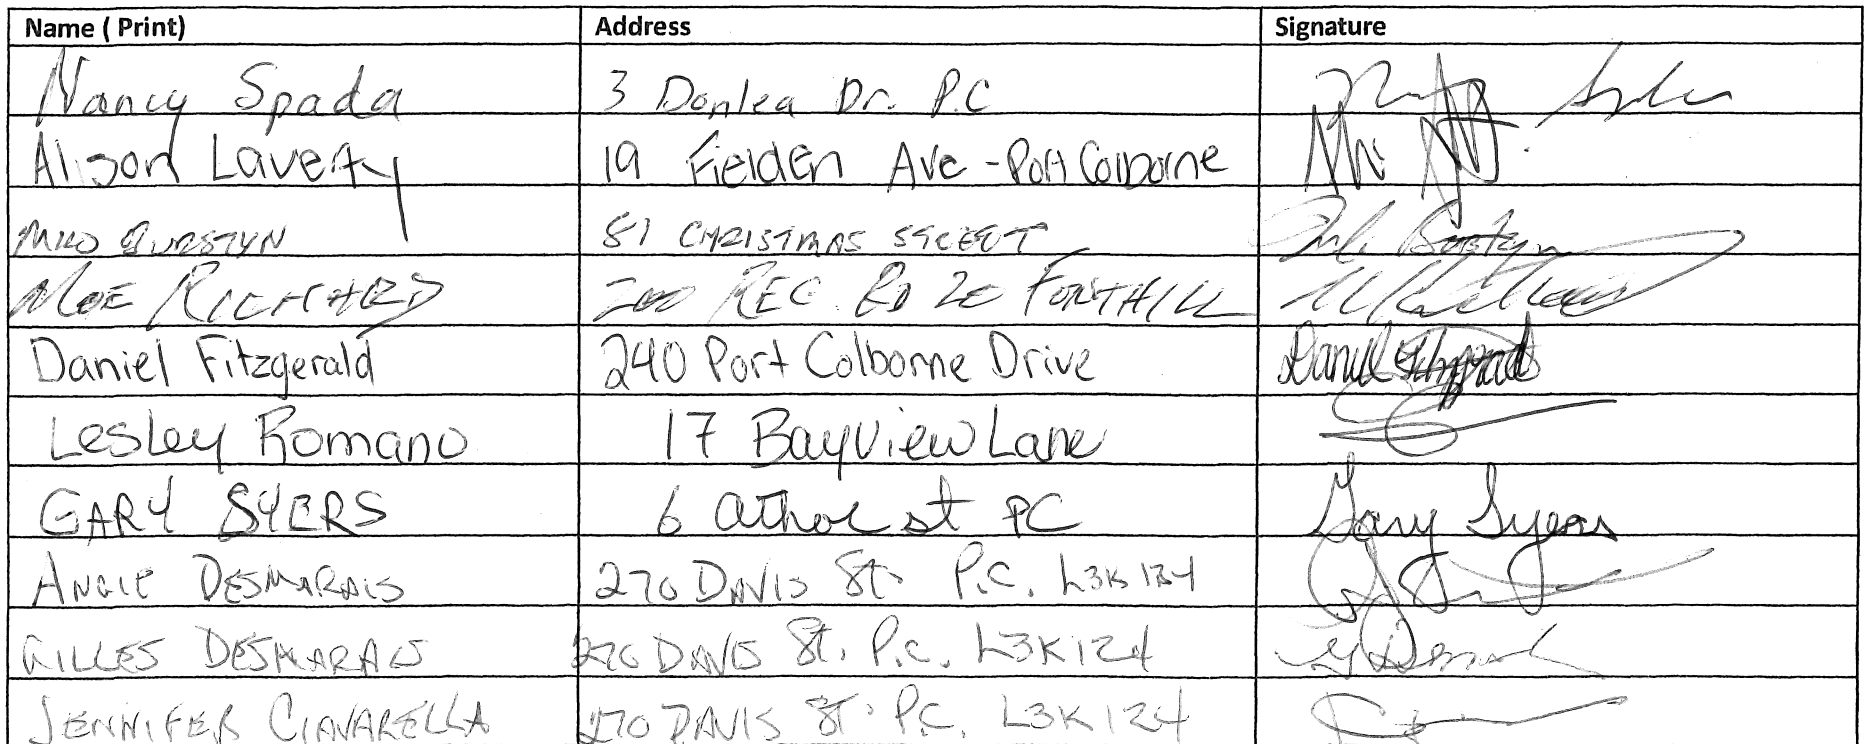 Name ( Print) Address Signature
Nancy Spada 3 Donlea Dr. P.C
Alison Laverty 19 Fielden Ave - Port Colborne
MILO BURSTYN 51 CHRISTMAS STREET
MOE RICHARD 200 REG. RD 20 FONTHILL
Daniel Fitzgerald 240 Port Colborne Drive Daniel Fitzgerald
Lesley Romano 17 Bayview Lane
GARY SYERS 6 Athoe st PC Gary Syers
ANGIE DESMARAIS 270 DAVIS St. P.C. L3K 1Z4
GILLES DESMARAIS 270 DAVIS St. P.C. L3K 1Z4
JENNIFER CIAVARELLA 270 DAVIS ST. P.C. L3K 1Z4